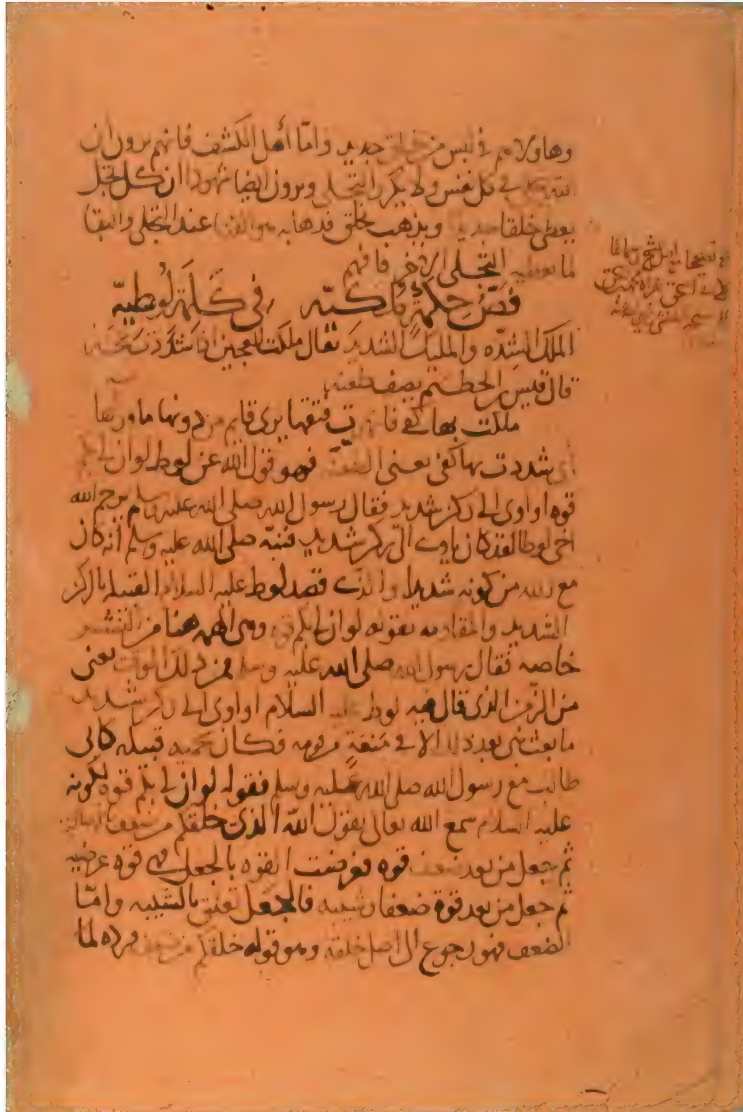 وهاولاء هم في لبس من خلق جديد واما أهل الكشف فانهم يرون ان
الله يتجلى في كل نفس ولا يكرر التجلي ويرون ايضا شهودا ان كل تجل
يعطى خلقا جديدا ويذهب بخلق فذهابه هو الفنا عند التجلي والبقا
لما يعطيه التجلى الاخر فافهم
فص حكمة ملكية في كلمة لوطيه
الملك الشده والمليك الشديد يقال ملكت العجين اذا شددت عجنه
قال قيس بن الحطيم يصف طعنه
ملكت بها كفي فانهرت فتقها يرى قايم من دونها ما ورأها
أى شددت بها كفى يعنى الطعنه فهو قول الله عن لوط لو ان لى بكم
قوه او اوى الى ركن شديد فقال رسول الله صلى الله عليه وسلم يرحم الله
اخى لوطا لقد كان ياوى الى ركن شديد فنبه صلى الله عليه وسلم أنه كان
مع الله من كونه شديدا والذى قصد لوط عليه السلام القبيله بالركن
الشديد والمقاومه بقوله لو ان لى بكم قوه وهى الهمه هنا من البشر
خاصه فقال رسول الله صلى الله عليه وسلم فمن ذلك الوقت يعنى
من الزمن الذى قال فيه لوط عليه السلام او اوى الى ركن شديد
ما بعث نبى بعد ذلك الا فى منعة من قومه فكان تحميه قبيله كابى
طالب مع رسول الله صلى الله عليه وسلم فقوله لو ان لى بكم قوه لكونه
عليه السلام سمع الله تعالى يقول الله الذى خلقكم من ضعف بالاصاله
ثم جعل من بعد ضعف قوه فعرضت القوه بالجعل فهى قوه عرضيه
ثم جعل من بعد قوة ضعفا وشيبه فالجعل تعلق بالشيبه وامّا
الضعف فهو رجوع الى اصل خلقه وهو قوله خلقكم من ضعف فرده لما